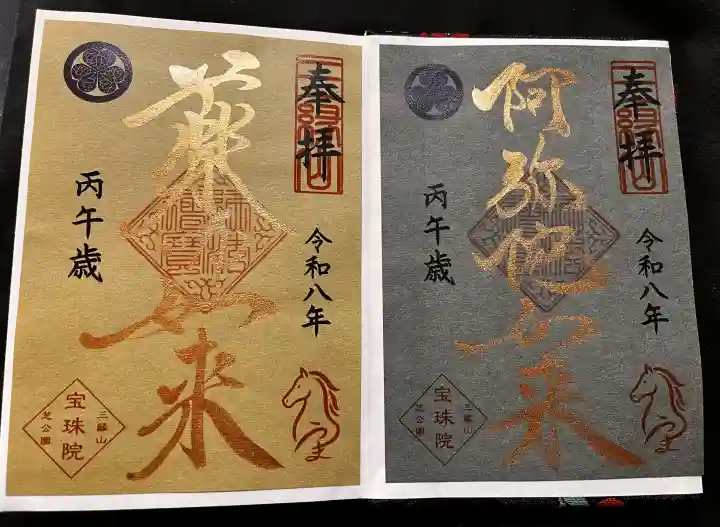 奉拝
令和八年
薬師如来
丙午歳
三縁山
宝珠院
芝公園
奉拝
令和八年
阿弥陀如来
丙午歳
三縁山
宝珠院
芝公園